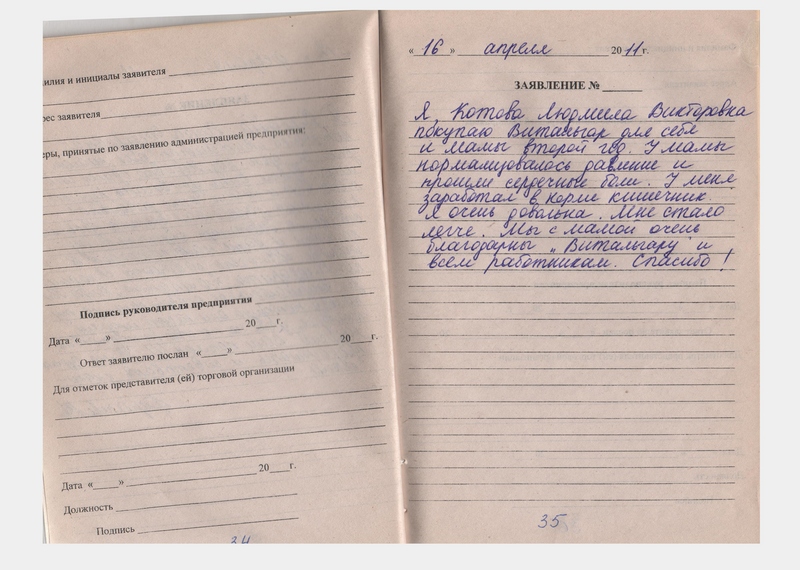 илия и инициалы заявителя
рес заявителя
еры, принятые по заявлению администрацией предприятия:
Подпись руководителя предприятия
Дата «____» 20___г.
Ответ заявителю послан «____» 20___г.
Для отметок представителя (ей) торговой организации
Дата «____» 20___г.
Должность
Подпись
34
« 16 » апреля 2011 г.
ЗАЯВЛЕНИЕ №
Я, Котова Людмила Викторовна
покупаю Витальгар для себя
и мамы второй год. У мамы
нормализовалось давление и
прошли сердечные боли. У меня
заработал в норме кишечник.
Я очень довольна. Мне стало
легче. Мы с мамой очень
благодарны „Витальгару" и
всем работникам. Спасибо!
35